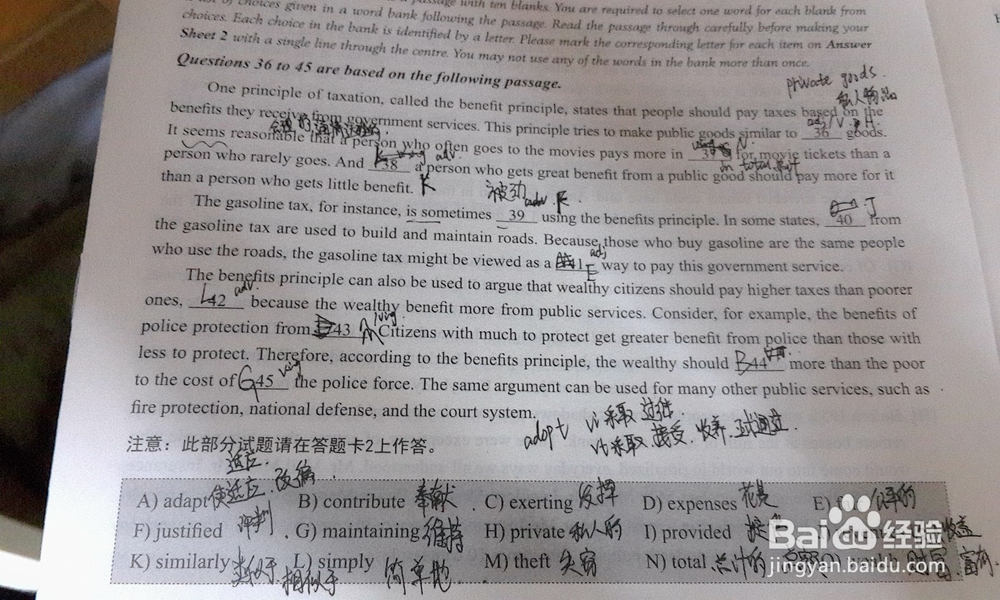 a passage with ten blanks. You are required to select one word for each blank from
list of choices given in a word bank following the passage. Read the passage through carefully before making your
choices. Each choice in the bank is identified by a letter. Please mark the corresponding letter for each item on Answer
Sheet 2 with a single line through the centre. You may not use any of the words in the bank more than once.
Questions 36 to 45 are based on the following passage.
private goods.
私人物品
One principle of taxation, called the benefit principle, states that people should pay taxes based on the
benefits they receive from government services. This principle tries to make public goods similar to 36 goods.
It seems reasonable that a person who often goes to the movies pays more in 37 for movie tickets than a
person who rarely goes. And 38 a person who gets great benefit from a public good should pay more for it
than a person who gets little benefit. K
被动
The gasoline tax, for instance, is sometimes 39 using the benefits principle. In some states, 40 J from
the gasoline tax are used to build and maintain roads. Because those who buy gasoline are the same people
who use the roads, the gasoline tax might be viewed as a 41 E way to pay this government service.
The benefits principle can also be used to argue that wealthy citizens should pay higher taxes than poorer
ones, L 42 adv. because the wealthy benefit more from public services. Consider, for example, the benefits of
police protection from 43 M Citizens with much to protect get greater benefit from police than those with
less to protect. Therefore, according to the benefits principle, the wealthy should B 44 more than the poor
to the cost of G 45 the police force. The same argument can be used for many other public services, such as
fire protection, national defense, and the court system.
adopt vi 采取 过继.
vt 采取 接受. 收养. 正式通过.
注意：此部分试题请在答题卡2上作答。
适应.
A) adapt 使适应. 改编 B) contribute 奉献 C) exerting 发挥 D) expenses 花费 E)
F) justified G) maintaining 维持 H) private 私人的 I) provided
K) similarly 类似于 相似于 L) simply 简单地 M) theft 失窃 N) total 总计的
Baidu 经验
jingyan.baidu.com